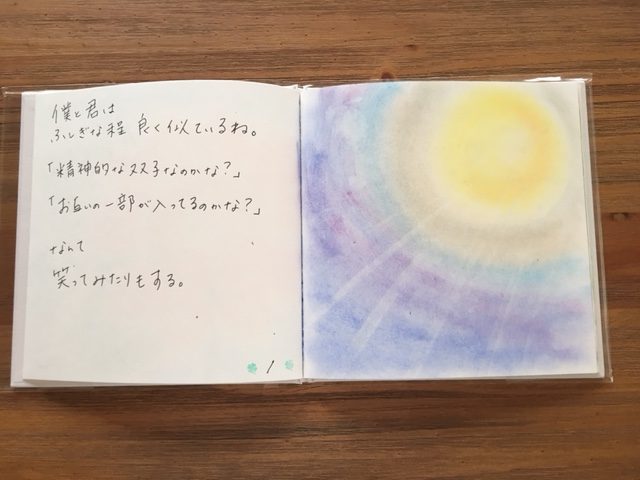 僕と君は
ふしぎな程 良く似ているね。
「精神的な双子なのかな?」
「お互いの一部が入ってるのかな?」
なんて
笑ってみたりもする。
1